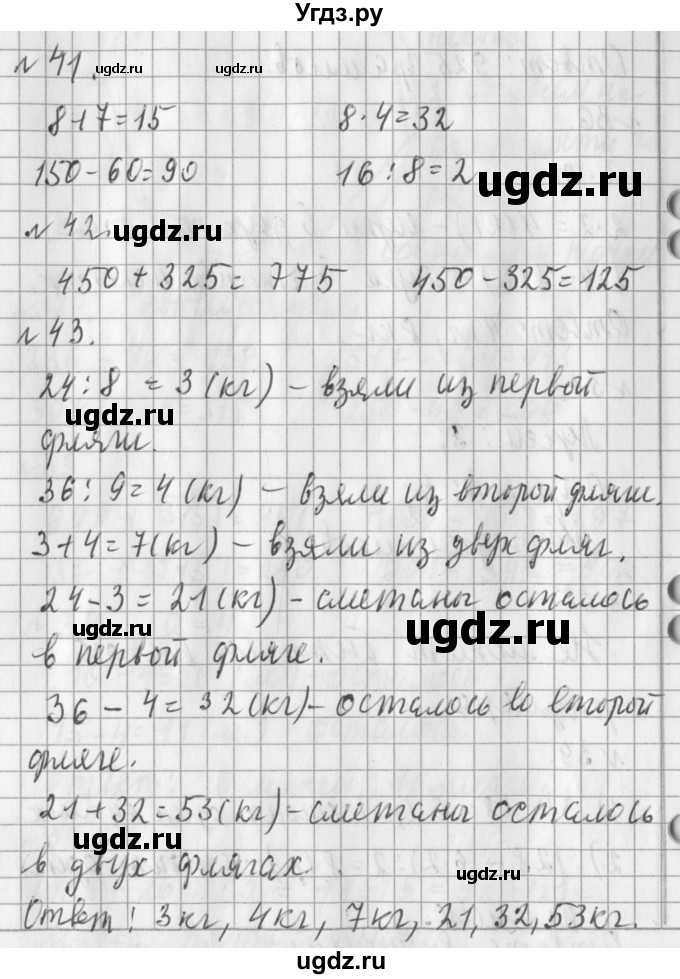 Угдз.ру
ugdz.ru ugdz.ru
№ 41.
8+7=15 8·4=32
150-60=90 16:8=2
ugdz.ru
№ 42. ugdz.ru
450+325=775 450-325=125
№ 43.
24:8=3(кг) - взяли из первой
ugdz.ru
фляги.
36:9=4(кг) - взяли из второй фляги.
3+4=7(кг) - взяли из двух фляг.
24-3=21(кг) - сметаны осталось
ugdz.ru ugdz.ru
в первой фляге.
36-4=32(кг) - осталось во второй
фляге.
21+32=53(кг) - сметаны осталось
ugdz.ru
в двух флягах. ugdz.ru
Ответ: 3кг, 4кг, 7кг, 21, 32, 53кг.
ugdz.ru